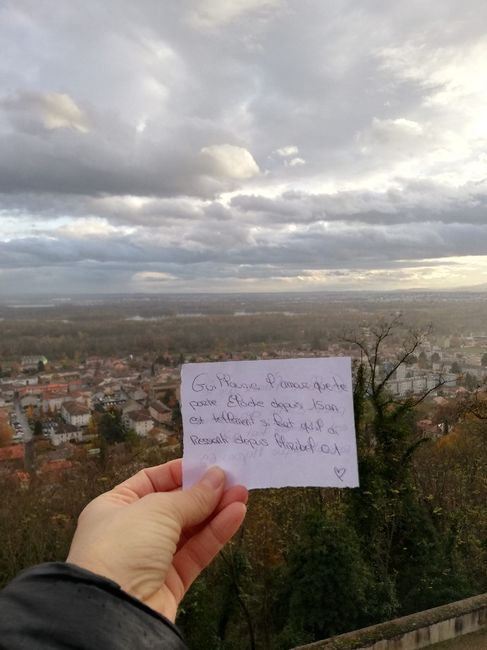 Guillaume, l'amour que te
porte Elodie depuis 15 ans
est tellement si fort qu'il a
Ressenti depuis Miribel 01
♡